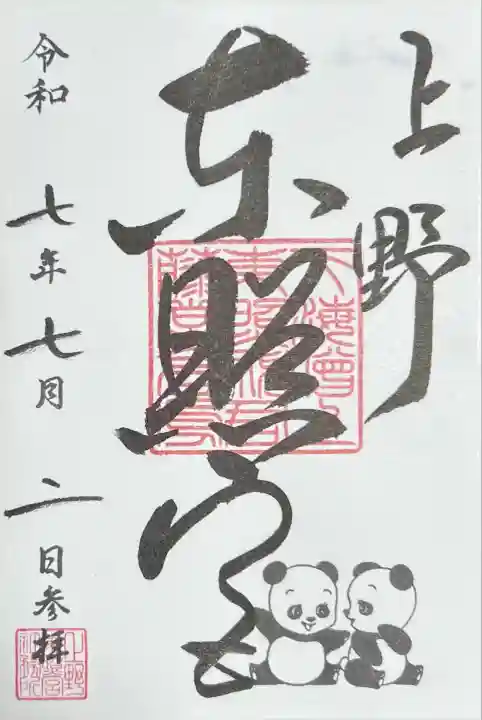 上野
東照宮
令和七年七月二日参拝